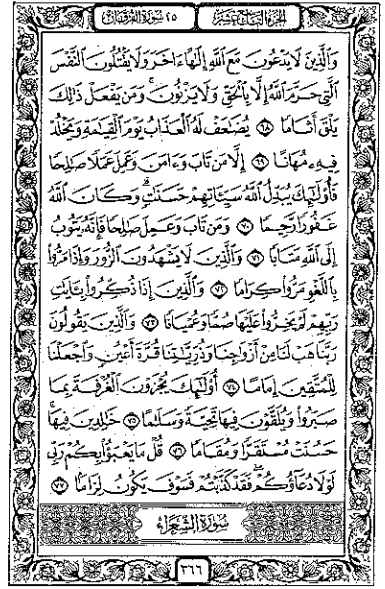 الجزء التاسع عشر ٢٥ سورة الفرقان
وَٱلَّذِينَ لَا يَدْعُونَ مَعَ ٱللَّهِ إِلَٰهًا ءَاخَرَ وَلَا يَقْتُلُونَ ٱلنَّفْسَ
ٱلَّتِي حَرَّمَ ٱللَّهُ إِلَّا بِٱلْحَقِّ وَلَا يَزْنُونَ ۚ وَمَن يَفْعَلْ ذَٰلِكَ
يَلْقَ أَثَامًا ٦٨ يُضَٰعَفْ لَهُ ٱلْعَذَابُ يَوْمَ ٱلْقِيَٰمَةِ وَيَخْلُدْ
فِيهِۦ مُهَانًا ٦٩ إِلَّا مَن تَابَ وَءَامَنَ وَعَمِلَ عَمَلًا صَٰلِحًا
فَأُوْلَٰٓئِكَ يُبَدِّلُ ٱللَّهُ سَيِّـَٔاتِهِمْ حَسَنَٰتٍ ۗ وَكَانَ ٱللَّهُ
غَفُورًا رَّحِيمًا ٧٠ وَمَن تَابَ وَعَمِلَ صَٰلِحًا فَإِنَّهُۥ يَتُوبُ
إِلَى ٱللَّهِ مَتَابًا ٧١ وَٱلَّذِينَ لَا يَشْهَدُونَ ٱلزُّورَ وَإِذَا مَرُّوا۟
بِٱللَّغْوِ مَرُّوا۟ كِرَامًا ٧٢ وَٱلَّذِينَ إِذَا ذُكِّرُوا۟ بِـَٔايَٰتِ
رَبِّهِمْ لَمْ يَخِرُّوا۟ عَلَيْهَا صُمًّا وَعُمْيَانًا ٧٣ وَٱلَّذِينَ يَقُولُونَ
رَبَّنَا هَبْ لَنَا مِنْ أَزْوَٰجِنَا وَذُرِّيَّٰتِنَا قُرَّةَ أَعْيُنٍ وَٱجْعَلْنَا
لِلْمُتَّقِينَ إِمَامًا ٧٤ أُوْلَٰٓئِكَ يُجْزَوْنَ ٱلْغُرْفَةَ بِمَا
صَبَرُوا۟ وَيُلَقَّوْنَ فِيهَا تَحِيَّةً وَسَلَٰمًا ٧٥ خَٰلِدِينَ فِيهَا ۚ
حَسُنَتْ مُسْتَقَرًّا وَمُقَامًا ٧٦ قُلْ مَا يَعْبَؤُا۟ بِكُمْ رَبِّي
لَوْلَا دُعَآؤُكُمْ ۖ فَقَدْ كَذَّبْتُمْ فَسَوْفَ يَكُونُ لِزَامًا ٧٧
سورة الشعراء
٣٦٦